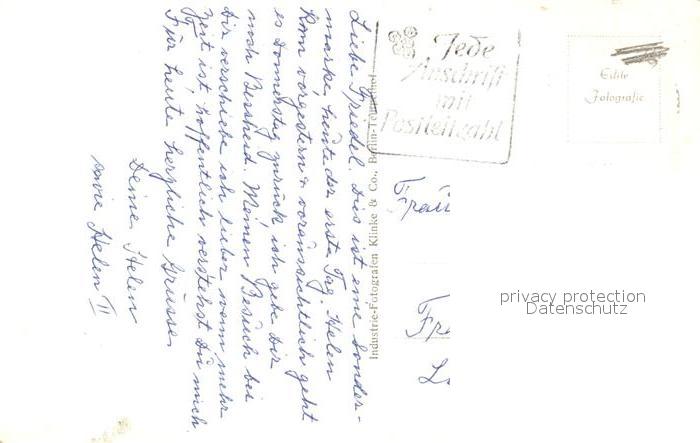 Liebe Friedel. Dies ist eine Sonder-
marke, heute der erste Tag. Helen
kam vorgestern & voraussichtlich geht
es Donnerstag zurück, ich gebe Dir
noch Bescheid. Meinen Besuch bei
Dir verschiebe ich lieber wenn mehr
Zeit ist, hoffentlich verstehst Du mich.
Für heute herzliche Grüsse
Deine Helen
sowie Helen II
Industrie-Fotografen Klinke & Co., Berlin-Tempelhof
Jede
Anschrift
mit
Postleitzahl
Echte
Fotografie
privacy protection
Datenschutz